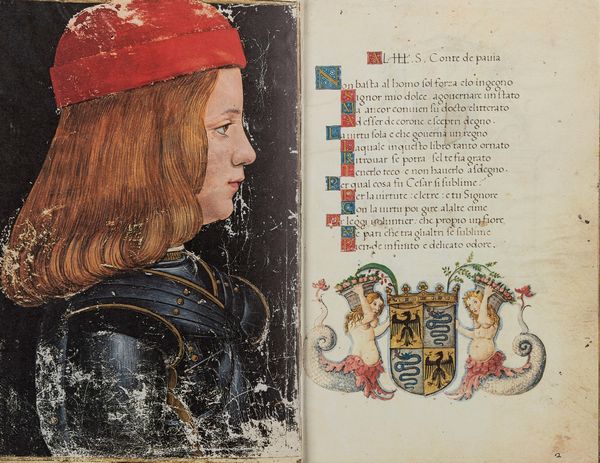 AL ILL. S. Conte de pavia
Non basta al homo sol forza elo ingegno
Signor mio dolce agouernare un stato
Ma ancor conuien su docto elitterato
Ad esser de corone e sceptri degno.
La uirtu sola e che gouerna un regno
Laquale in questo libro tanto ornato
Ritrouar se potra sel te fia grato
Tenerlo teco e non hauerlo asdegno.
Per qual cosa fu Cesar si sublime.
Per la uirtute: eletre: e tu Signore
Con la uirtu poi gire alalte cime
Per leggi uoluntier che propio un fiore
Se pari che tra glialtri se sublime
Puien de infinito e delicato odore.